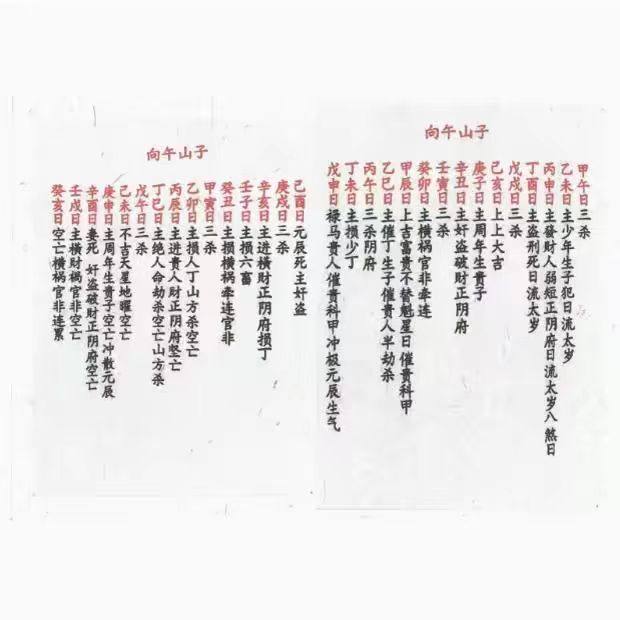 子山午向
甲午日三杀
乙未日主少年生子犯日流太岁
丙申日主發财人弱短正阴府日流太岁八煞日
丁酉日主盗刑死日流太岁
戊戌日三杀
己亥日上上大吉
庚子日主周年生贵子
辛丑日主奸盗破财正阴府
壬寅日三杀
癸卯日主横祸官非牵连
甲辰日上吉富贵不替魁星日催贵科甲
乙巳日主催丁生子催贵人半劫杀
丙午日三杀阴府
丁未日主损少丁
戊申日禄马贵人催贵科甲冲极元辰生气
子山午向
己酉日元辰死主奸盗
庚戌日三杀
辛亥日主进横财正阴府损丁
壬子日主损六畜
癸丑日主损横祸牵连官非
甲寅日三杀
乙卯日主损人丁山方杀空亡
丙辰日主进贵人财正阴府坚亡
丁巳日主绝人命劫杀空亡山方杀
戊午日三杀
己未日不吉天星地曜空亡
庚申日主周年生贵子空亡冲散元辰
辛酉日妻死 奸盗破财正阴府空亡
壬戌日主横财祸官非空亡
癸亥日空亡横祸官非连累